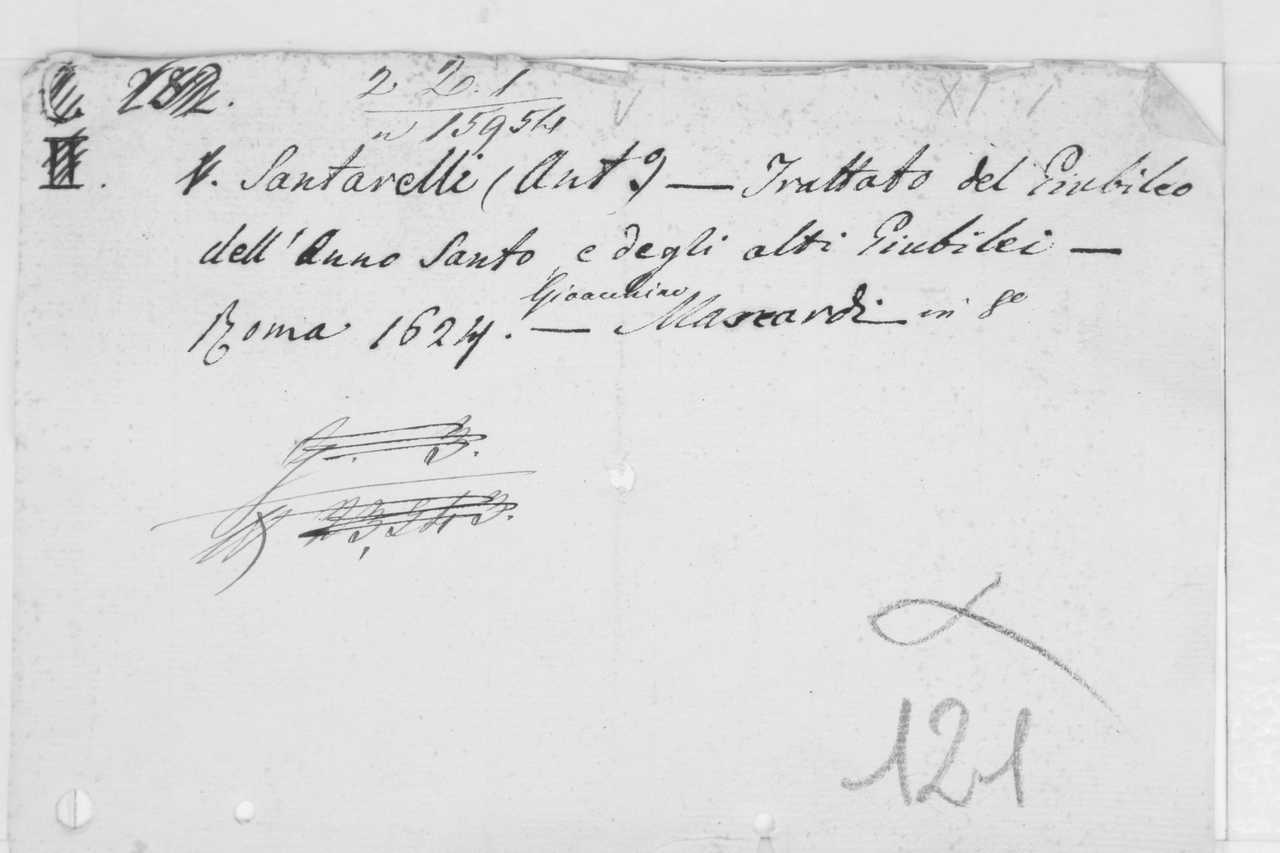 182.
2 2. 1
n 15954
XI 1
II. 1. Santarelli (Ant.o) — Trattato del Giubileo
dell'Anno Santo e degli altri Giubilei —
Gioacchino
Roma 1624. — Mascardi in 8o
3.
121